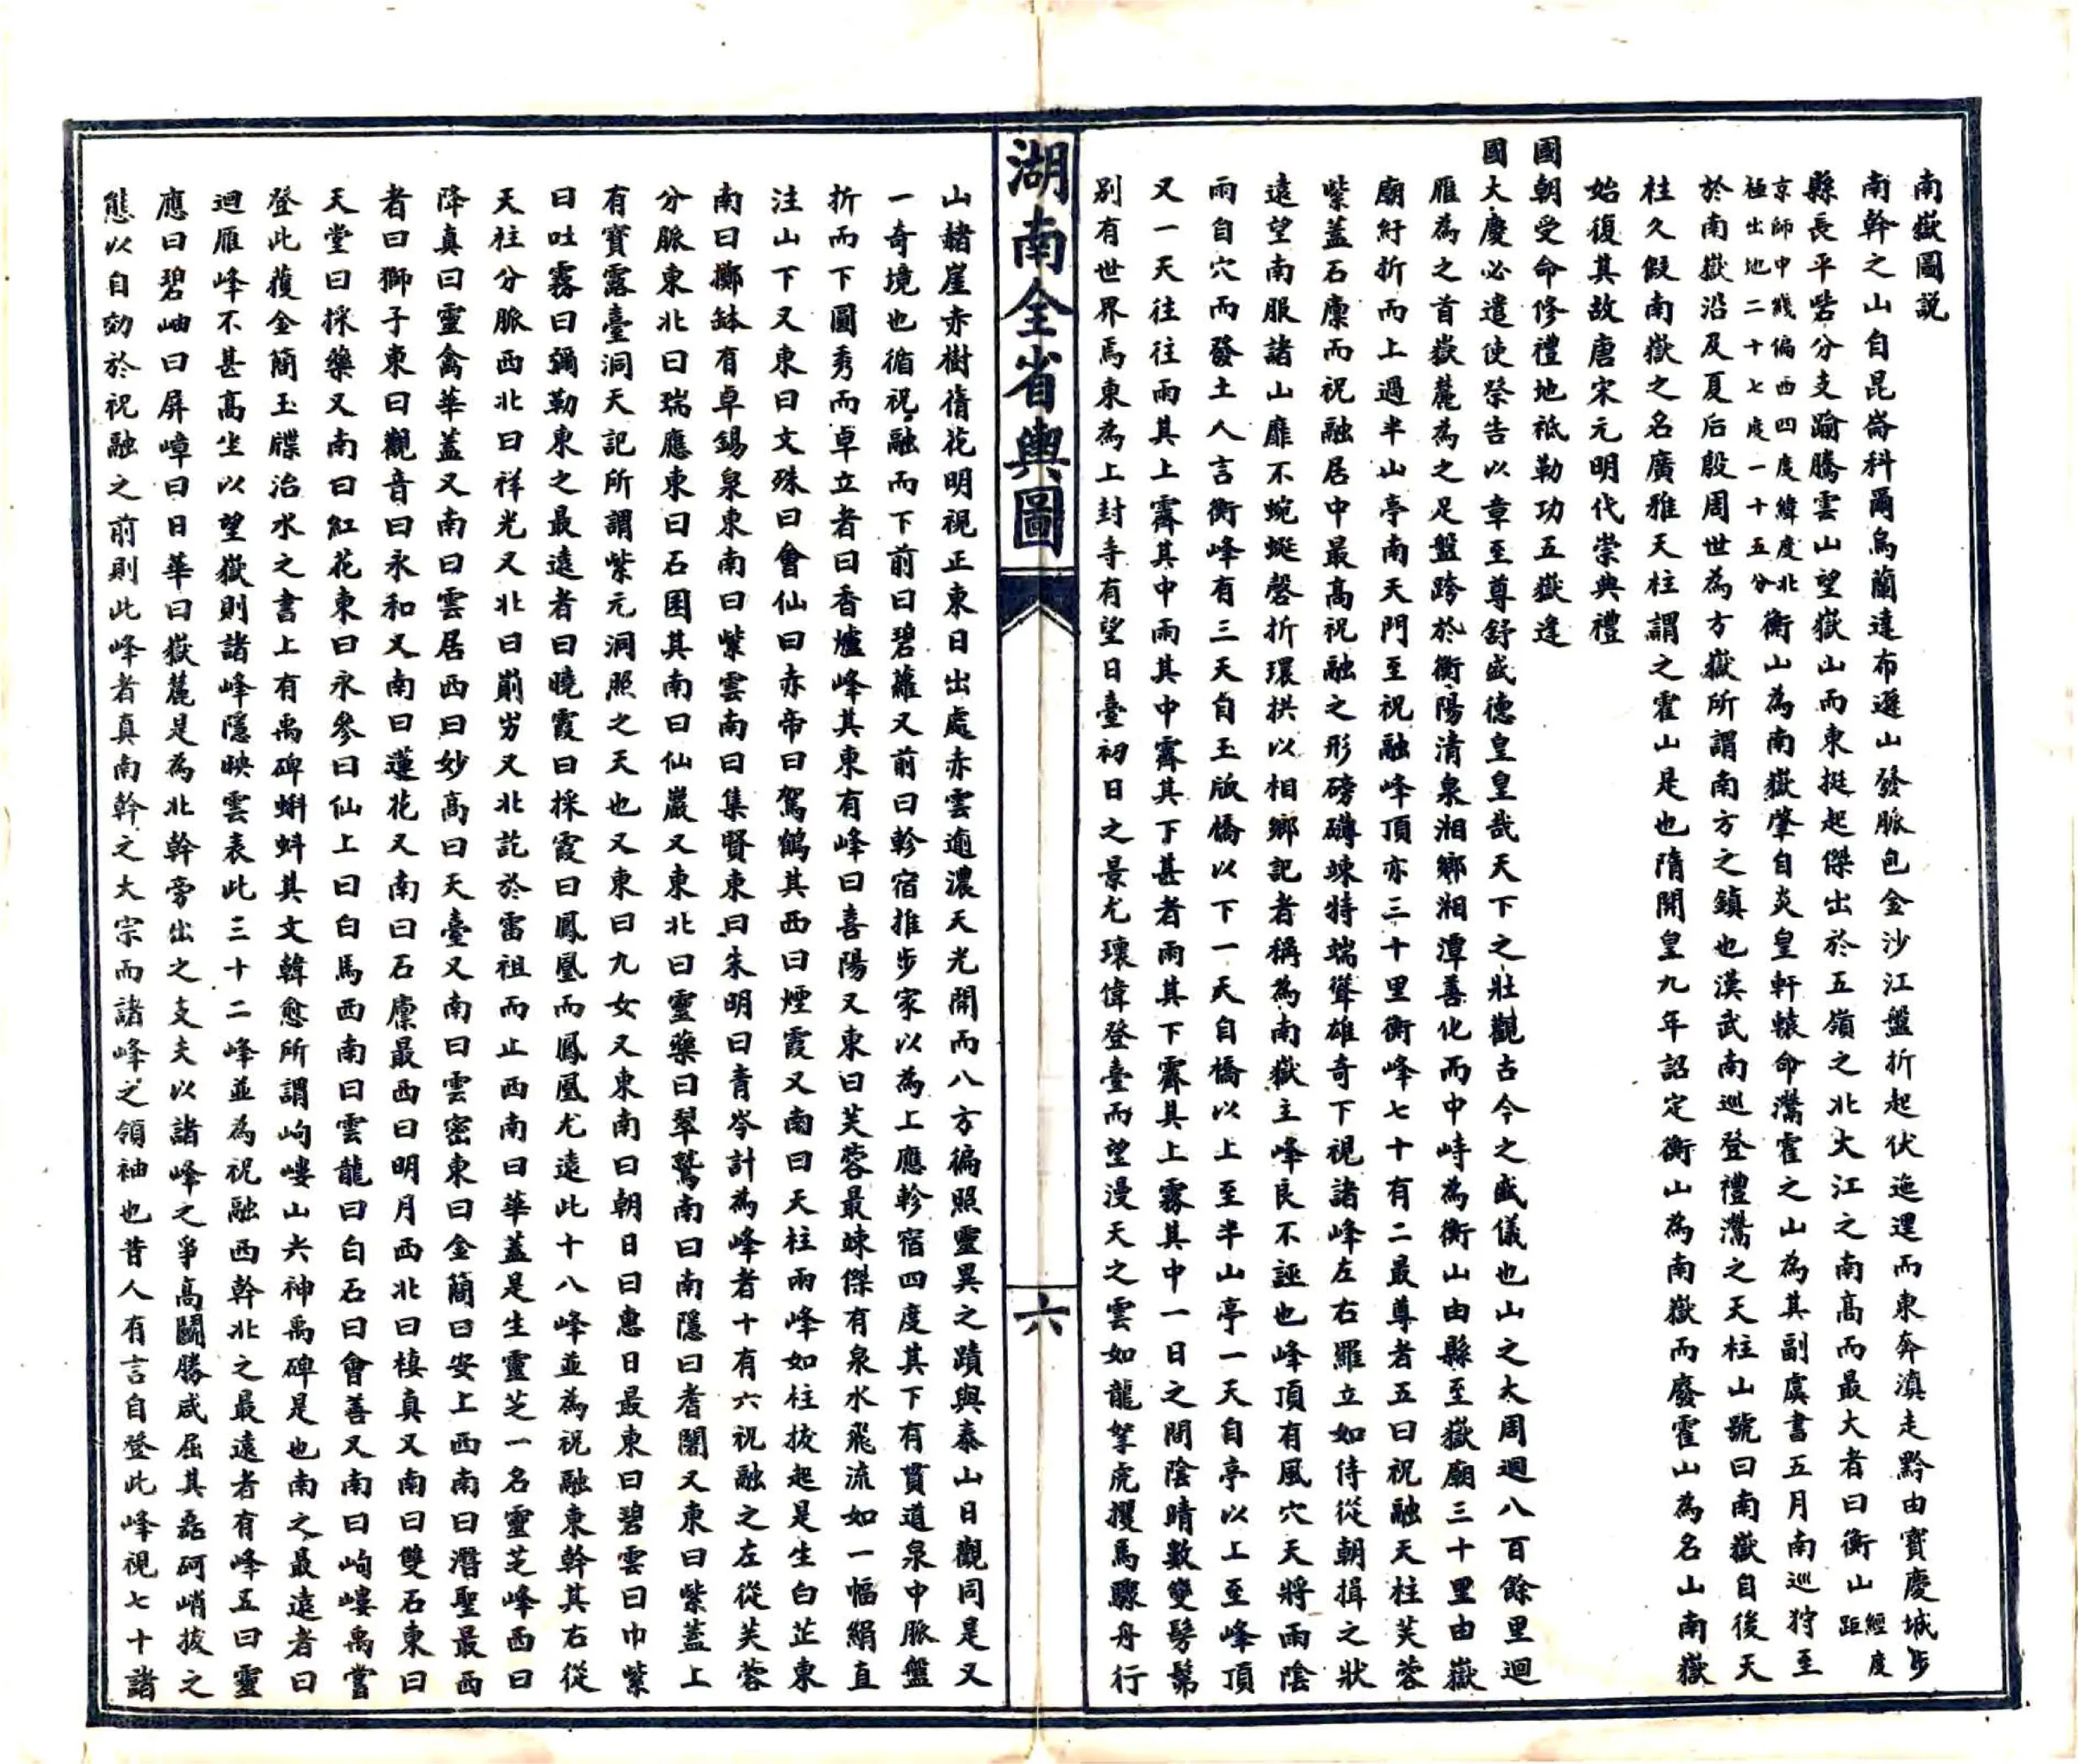 南嶽圖説
南幹之山自昆崙科爾烏蘭達布遜山發脈包金沙江盤折起伏迤邐而東奔滇走黔由寶慶城步
縣長平砦分支踰騰雲山望嶽山而東挺起傑出於五嶺之北大江之南高而最大者曰衡山經度距
京師中綫偏西四度緯度北極出地二十七度一十五分衡山為南嶽肇自炎皇軒轅命灊霍之山為其副虞書五月南巡狩至
於南嶽沿及夏后殷周世為方嶽所謂南方之鎮也漢武南巡登禮灊之天柱山號曰南嶽自後天
柱久假南嶽之名廣雅天柱謂之霍山是也隋開皇九年詔定衡山為南嶽而廢霍山為名山南嶽
始復其故唐宋元明代崇典禮
國朝受命修禮地祇勒功五嶽逢
國大慶必遣使祭告以章至尊舒盛德皇皇哉天下之壯觀古今之盛儀也山之大周迴八百餘里迴
雁為之首嶽麓為之足盤跨於衡陽清泉湘鄉湘潭善化而中峙為衡山由縣至嶽廟三十里由嶽
廟紆折而上過半山亭南天門至祝融峰頂亦三十里衡峰七十有二最尊者五曰祝融天柱芙蓉
紫蓋石廩而祝融居中最高祝融之形磅礴竦特端聳雄奇下視諸峰左右羅立如侍從朝揖之狀
遠望南服諸山靡不蜿蜒磬折環拱以相鄉記者稱為南嶽主峰良不誣也峰頂有風穴天將雨陰
雨自穴而發土人言衡峰有三天自玉版橋以下一天自橋以上至半山亭一天自亭以上至峰頂
又一天往往雨其上霽其中雨其中霽其下甚者雨其下霽其上霧其中一日之間陰晴數變髣髴
別有世界焉東為上封寺有望日臺初日之景尤瓌偉登臺而望漫天之雲如龍拏虎攫馬驟舟行
湖南全省輿圖
六
山赭崖赤樹蓨花明視正東日出處赤雲逾濃天光開而八方徧照靈異之蹟與泰山日觀同是又
一奇境也循祝融而下前曰碧蘿又前曰軫宿推步家以為上應軫宿四度其下有貫道泉中脈盤
折而下圓秀而卓立者曰香爐峰其東有峰曰喜陽又東曰芙蓉最竦傑有泉水飛流如一幅絹直
注山下又東曰文殊曰會仙曰赤帝曰駕鶴其西曰煙霞又南曰天柱兩峰如柱拔起是生白芷東
南曰擲鉢有卓錫泉東南曰紫雲南曰集賢東曰朱明曰青岑計為峰者十有六祝融之左從芙蓉
分脈東北曰瑞應東曰石囷其南曰仙巖又東北曰靈藥曰翠鷲南曰南隱曰耆闍又東曰紫蓋上
有寶露臺洞天記所謂紫元洞照之天也又東曰九女又東南曰朝日曰惠日最東曰碧雲曰巾紫
曰吐霧曰彌勒東之最遠者曰曉霞曰採霞曰鳳凰而鳳凰尤遠此十八峰並為祝融東幹其右從
天柱分脈西北曰祥光又北曰崱屴又北訖於雷祖而止西南曰華蓋是生靈芝一名靈芝峰西曰
降真曰靈禽華蓋又南曰雲居西曰妙高曰天臺又南曰雲密東曰金簡曰安上西南曰潛聖最西
者曰獅子東曰觀音曰永和又南曰蓮花又南曰石廩最西曰明月西北曰棲真又南曰雙石東曰
天堂曰採藥又南曰紅花東曰永參曰仙上曰白馬西南曰雲龍曰白石曰會善又南曰岣嶁禹嘗
登此獲金簡玉牒治水之書上有禹碑蝌蚪其文韓愈所謂岣嶁山尖神禹碑是也南之最遠者曰
迴雁峰不甚高坐以望嶽則諸峰隱映雲表此三十二峰並為祝融西幹北之最遠者有峰五曰靈
應曰碧岫曰屏嶂曰日華曰嶽麓是為北幹旁出之支夫以諸峰之爭高鬭勝咸屈其磊砢峭拔之
態以自劾於祝融之前則此峰者真南幹之大宗而諸峰之領袖也昔人有言自登此峰視七十諸